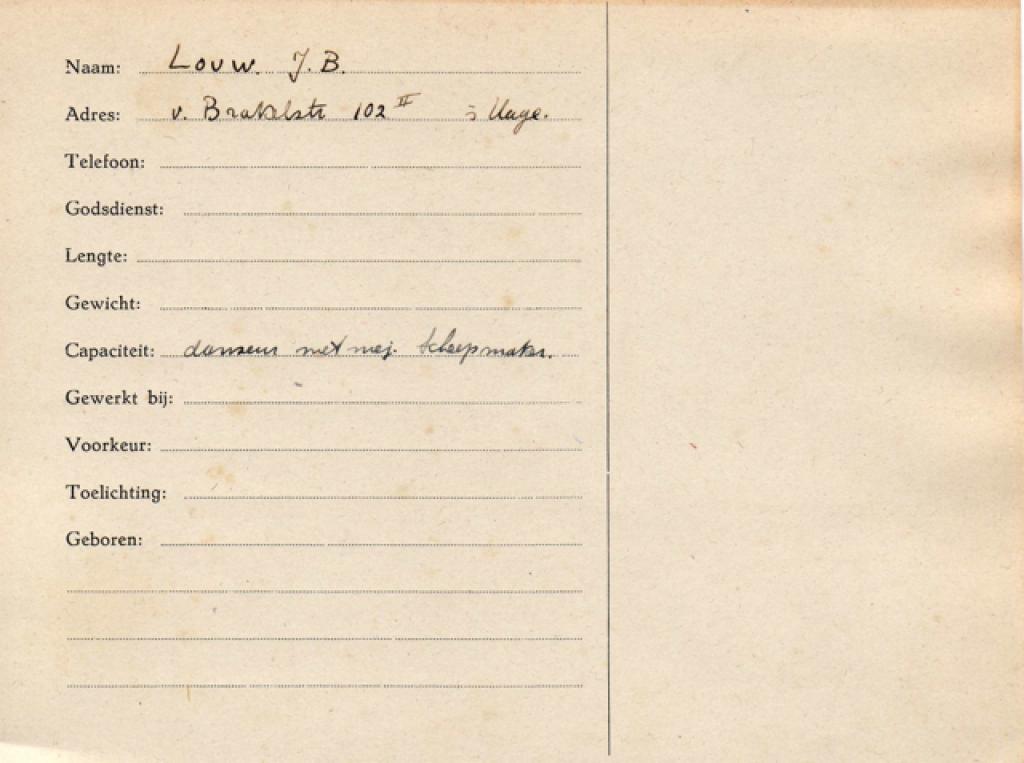 Naam: Louw. J. B.
Adres: v. Brakelstr 102 II 's Hage.
Telefoon:
Godsdienst:
Lengte:
Gewicht:
Capaciteit: danseur met mej. Scheepmaker.
Gewerkt bij:
Voorkeur:
Toelichting:
Geboren: